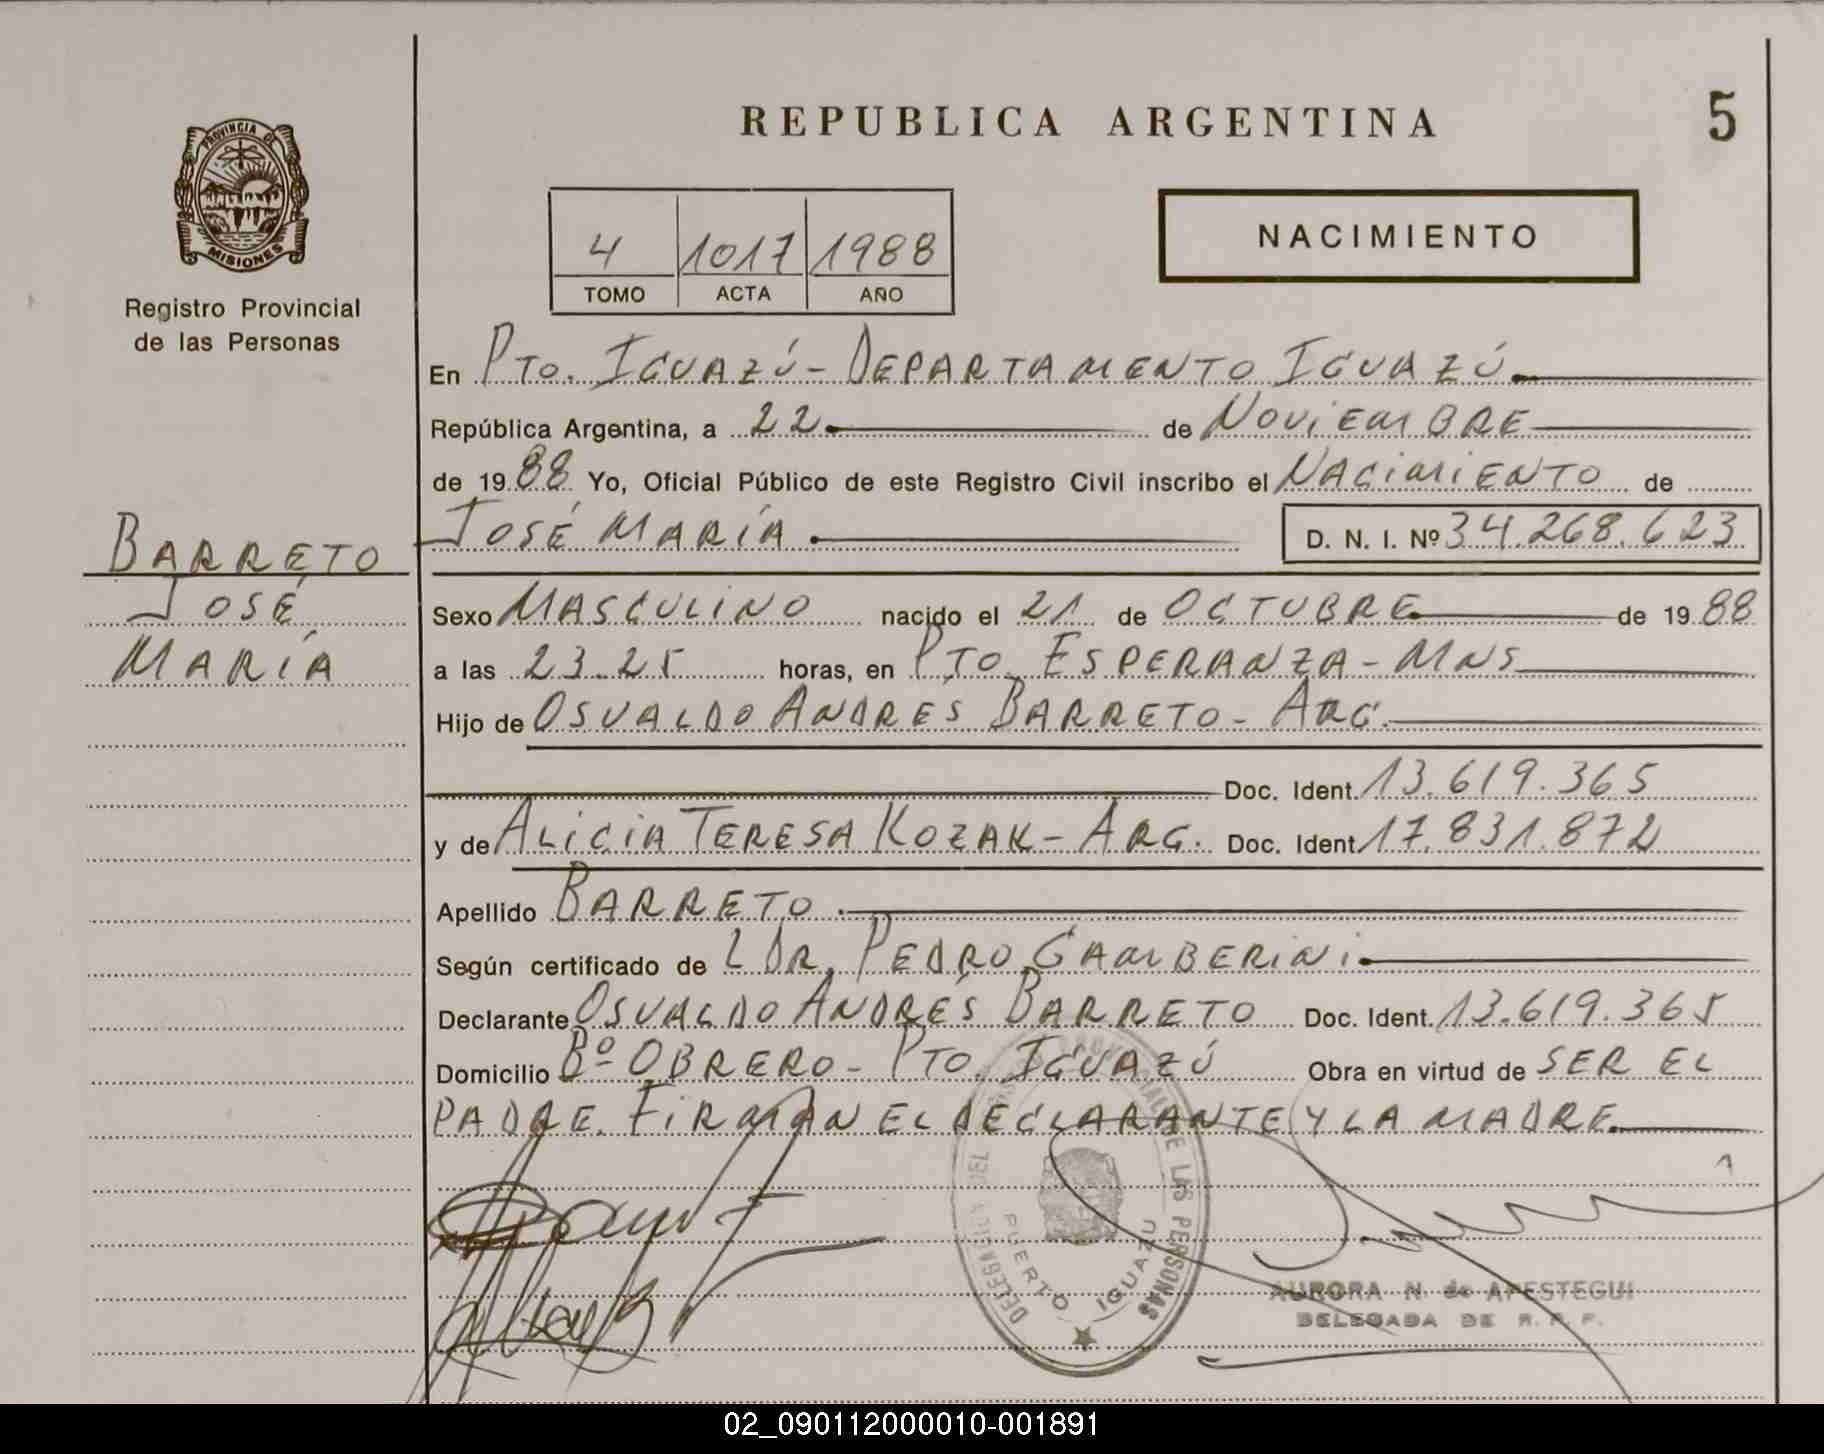 REPUBLICA ARGENTINA
5
PROVINCIA DE
MISIONES
Registro Provincial
de las Personas
4 1017 1988
TOMO ACTA AÑO
NACIMIENTO
En PTO. IGUAZÚ - DEPARTAMENTO IGUAZÚ.
República Argentina, a 22 de NOVIEMBRE
de 1988 Yo, Oficial Público de este Registro Civil inscribo el NACIMIENTO de
JOSÉ MARÍA. D. N. I. Nº 34.268.623
BARRETO
JOSÉ
MARÍA
Sexo MASCULINO nacido el 21 de OCTUBRE de 1988
a las 23.25 horas, en PTO. ESPERANZA - MNS
Hijo de OSVALDO ANDRÉS BARRETO - ARG.
Doc. Ident. 13.619.365
y de ALICIA TERESA KOZAK - ARG. Doc. Ident. 17.831.872
Apellido BARRETO.
Según certificado de L DR. PEDRO GAMBERINI.
Declarante OSVALDO ANDRÉS BARRETO Doc. Ident. 13.619.365
Domicilio Bº OBRERO - PTO. IGUAZÚ Obra en virtud de SER EL
PADRE. FIRMAN EL DECLARANTE Y LA MADRE.
DE LAS PERSONAS
PUERTO IGUAZU
AURORA N. de APESTEGUI
DELEGADA DE R. P. P.
02_090112000010-001891